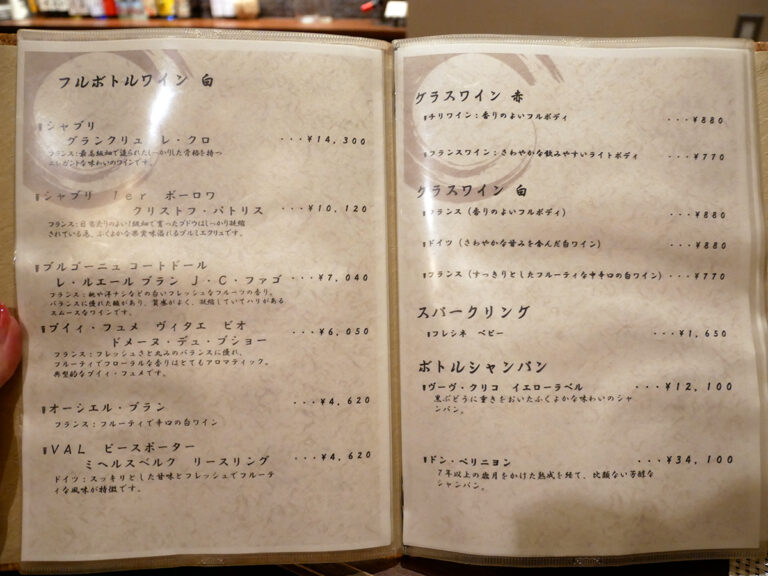 フルボトルワイン 白
シャブリ
グランクリュ レ・クロ ・・・¥14,300
フランス:最高級畑で造られたしっかりした骨格を持つ
エレガントな味わいのワインです。
シャブリ 1er ボーロワ
クリストフ・パトリス ・・・¥10,120
フランス:日当たりのよい1級畑で育ったブドウはしっかり凝縮
されている為、ふくよかな果実味溢れるプルミエクリュです。
ブルゴーニュ コートドール
レ・ルエール ブラン J・C・ファゴ ・・・¥7,040
フランス:桃や洋ナシなどの白いフレッシュなフルーツの香り。
バランスに優れた酸があり、質感がよく、凝縮していてハリがある
スムースなワインです。
プイィ・フュメ ヴィタエ ビオ ・・・¥6,050
ドメーヌ・デュ・ブショー
フランス:フレッシュさと丸みのバランスに優れ、
フルーティでフローラルな香りはとてもアロマティック。
典型的なプイィ・フュメです。
オーシエル・ブラン ・・・¥4,620
フランス:フルーティで辛口の白ワイン
VAL ピースポーター
ミヘルスベルク リースリング ・・・¥4,620
ドイツ:スッキリとした甘味とフレッシュでフルーテ
ィな風味が特徴です。
グラスワイン 赤
チリワイン:香りのよいフルボディ ・・・¥880
フランスワイン:さわやかな飲みやすいライトボディ ・・・¥770
グラスワイン 白
フランス(香りのよいフルボディ) ・・・¥880
ドイツ(さわやかな甘みを含んだ白ワイン) ・・・¥880
フランス(すっきりとしたフルーティな中辛口の白ワイン) ・・・¥770
スパークリング
フレシネ ベビー ・・・¥1,650
ボトルシャンパン
ヴーヴ・クリコ イエローラベル ・・・¥12,100
黒ぶどうに重きをおいたふくよかな味わいのシャ
ンパン。
ドン・ペリニヨン ・・・¥34,100
7年以上の歳月をかけた熟成を経て、比類ない芳醇な
シャンパン。